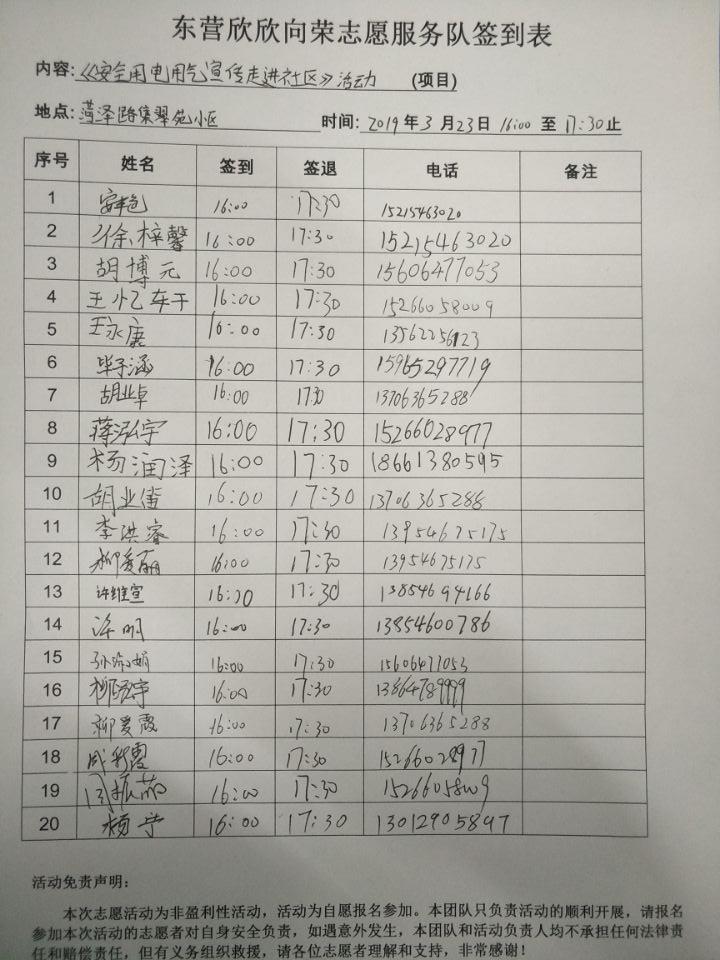 东营欣欣向荣志愿服务队签到表
内容:《安全用电用气宣传走进社区》活动 (项目)
地点:菏泽路集翠苑小区 时间:2019年3月23日 16:00 至 17:30止
序号 姓名 签到 签退 电话 备注
1 16:00 17:30 15215463020
2 徐梓馨 16:00 17:30 15215463020
3 胡博元 16:00 17:30 15606477053
4 王忆车干 16:00 17:30 15266058009
5 王永康 16:00 17:30 13562256123
6 毕子涵 16:00 17:30 15965297719
7 胡业卓 16:00 17:30 13706365288
8 蒋泓宇 16:00 17:30 15266028977
9 杨润泽 16:00 17:30 18661380595
10 胡业 16:00 17:30 13706365288
11 李洪睿 16:00 17:30 13954675175
12 柳爱丽 16:00 17:30 13954675175
13 许维宣 16:00 17:30 13854694166
14 许明 16:00 17:30 13854600786
15 16:00 17:30 15606477053
16 16:00 17:30 13864789999
17 柳爱霞 16:00 17:30 13706365288
18 成彩霞 16:00 17:30 15266028977
19 16:00 17:30 15266058009
20 杨宁 16:00 17:30 13012905897
活动免责声明:
本次志愿活动为非盈利性活动,活动为自愿报名参加。本团队只负责活动的顺利开展,请报名
参加本次活动的志愿者对自身安全负责,如遇意外发生,本团队和活动负责人均不承担任何法律责
任和赔偿责任,但有义务组织救援,请各位志愿者理解和支持,非常感谢!